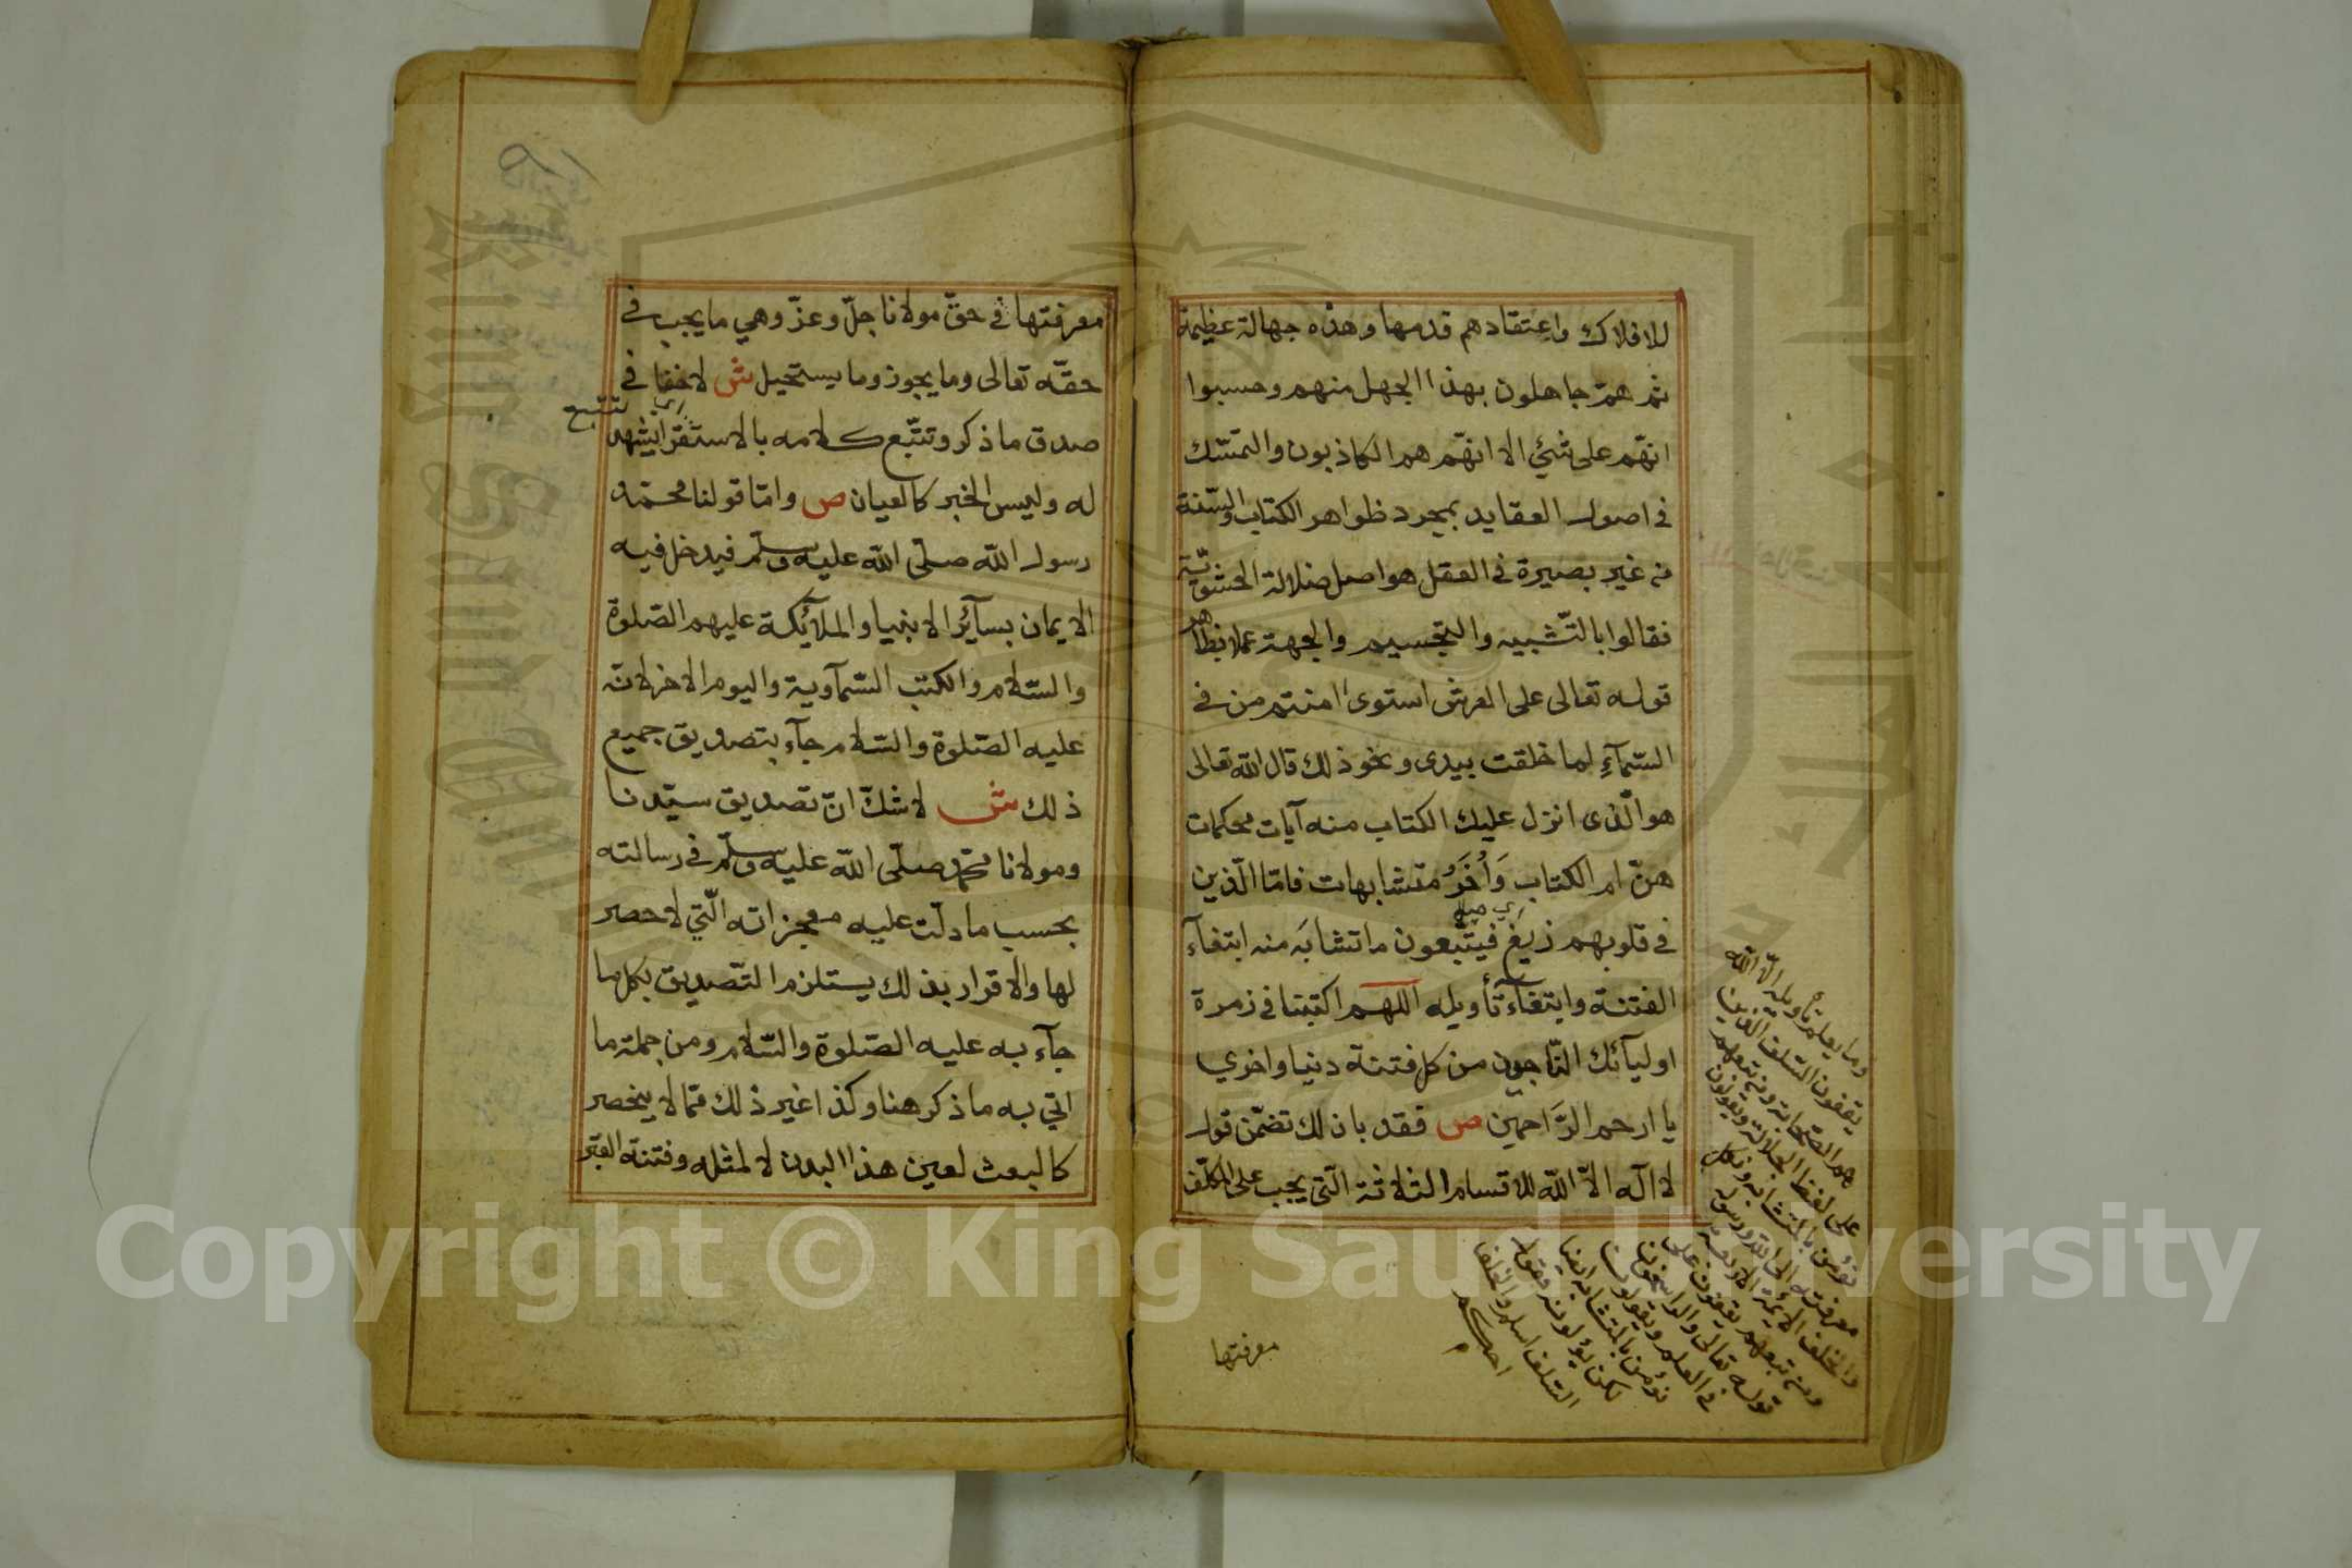 للافلاك واعتقادهم قدمها وهذه جهالة عظيمة
ثم هم جاهلون بهذا الجهل منهم وحسبوا
انهّم على شئ الا انهّم هم الكاذبون والتمسّك
في اصول العقايد بمجرد ظواهر الكتاب والسّنة
من غير بصيرة في العقل هو اصل ضلالة الحشويّة
فقالوا بالتّشبيه والتجسيم والجهة عملا بظاهر
قوله تعالى على العرش استوى امنتم من في
السّمآءِ لما خلقت بيدى ونحو ذلك قال الله تعالى
هو الّذى انزل عليك الكتاب منه آيات محكمات
هنّ ام الكتاب وَاُخَرُ متشابهات فامّا الّذين
في قلوبهم زيغ فيتّبعون ما تشابَه منه ابتغآء
اي ميل
الفتنة وابتغآء تأويله اللهم اكتبنا في زمرة
اوليآئك النّاجون من كل فتنة دنيا واخري
يا ارحم الرَّاحمين ص فقد بان لك تضمّن قول
لا اله الاّ الله للاقسام الثلاثة الّتي يجب على المكلّف
وما يعلم تأويله الّا الله
يقفون السّلف الّذين
هم الصّحابة ومن تبعهم
على لفظ الجلالة ويقولون
نؤمن بالمتشابه ونكل
معرفته الى الله ورسوله
والخلف الائمة الاربعة
ومن تبعهم يقفون على
قوله تعالى والراسخون
في العلم ويقولون
نؤمن بالمتشابه ايضا
لكن يؤلونه فقول
السّلف اسلم والخلف
احكم
معرفتها
معرفتها في حقّ مولانا جلّ وعزّ وهي ما يجب في
حقّه تعالى وما يجوز وما يستحيل ش لا خفا في
صدق ما ذكر وتتبّع كلامه بالاستقرا يشهد
اي تتبع
له وليس الخبر كالعيان ص وامّا قولنا محمّد
رسول الله صلّى الله عليه وسلّم فيدخل فيه
الايمان بسآئر الانبيا والملآئكة عليهم الصّلوة
والسّلام والكتب السّمآوية واليوم الاخر لانّه
عليه الصّلوة والسّلام جآء بتصديق جميع
ذلك ش لا شكّ انّ تصديق سيّدنا
ومولانا محمّد صلّى الله عليه وسلّم في رسالته
بحسب ما دلّت عليه معجزاته الّتي لا حصر
لها والاقرار بذلك يستلزم التّصديق بكل ما
جآء به عليه الصّلوة والسّلام ومن جملة ما
اتي به ما ذكر هنا وكذا غير ذلك ممّا لا ينحصر
كالبعث لعين هذا البدن لا لمثله وفتنة القبر
Copyright © King Saud University